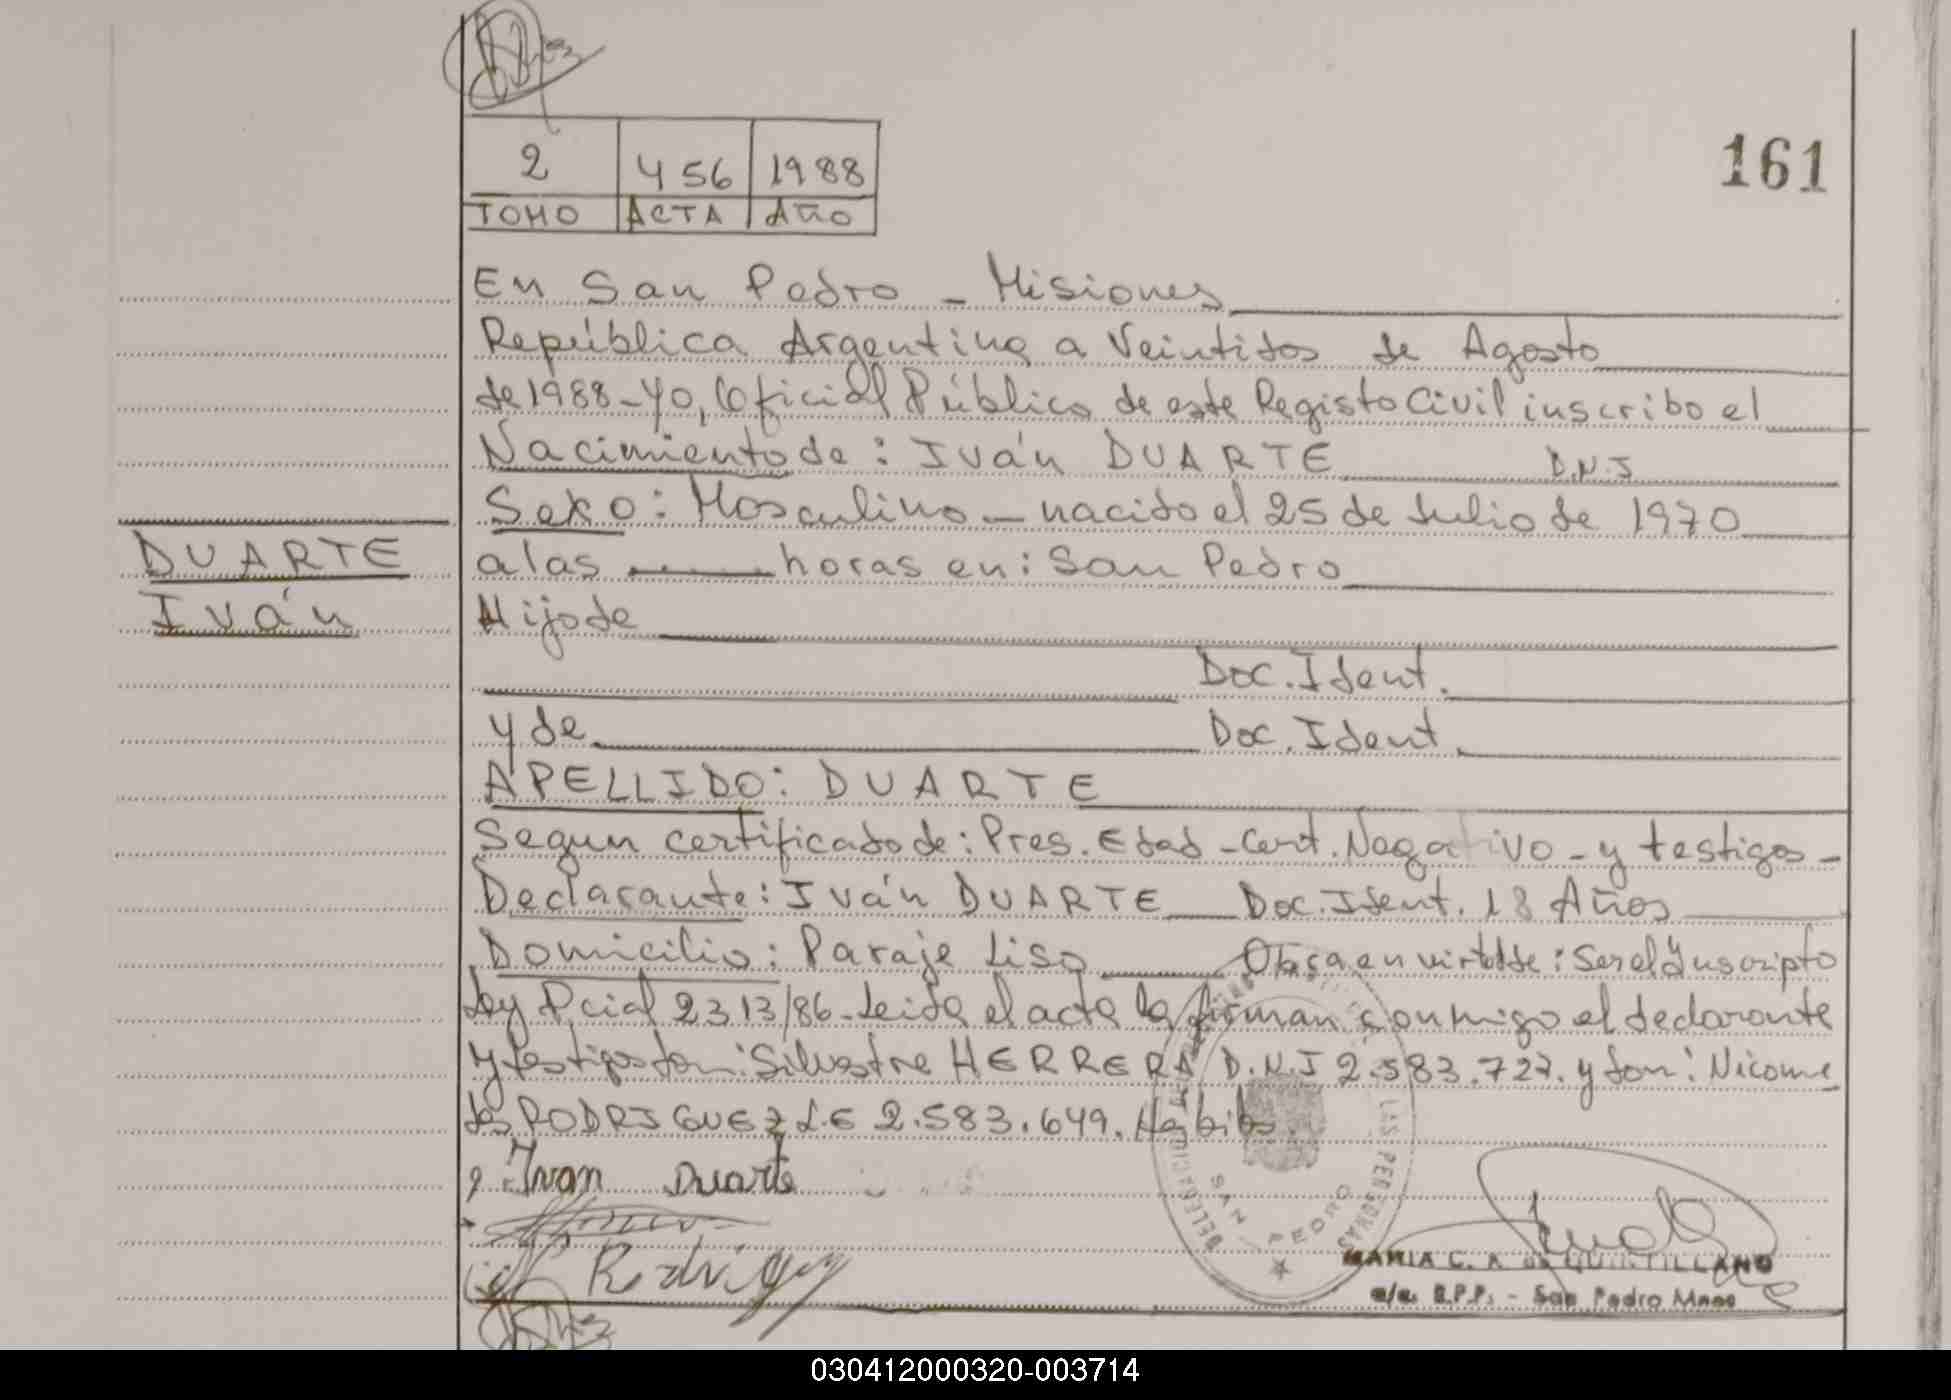 2 456 1988
TOMO ACTA AÑO
161
En San Pedro - Misiones
República Argentina a Veintidos de Agosto
de 1988 - Yo, Oficial Público de este Registo Civil inscribo el
Nacimiento de : Iván DUARTE D.N.I
Sexo : Masculino - nacido el 25 de Julio de 1970
DUARTE
a las horas en : San Pedro
Iván
Hijo de
Doc. Ident.
y de Doc. Ident.
APELLIDO : DUARTE
Segun certificado de : Pres. Edad - Cert. Negativo - y testigos -
Declarante : Iván DUARTE Doc. Ident. 18 Años
Domicilio : Paraje Liso Obra en virtud de : Ser el Inscripto
Ley Pcial 2313/86 - Leida el acta la firman conmigo el declarante
y testigos don : Silvestre HERRERA D.N.I 2.583.727. y don : Nicome
des RODRIGUEZ L.E 2.583.649.
Ivan Duarte
SAN PEDRO
LAS PERSONAS
Rodriguez
MARIA C. A. de QUINTILLANO
a/c. R.P.P. - San Pedro Mnes
030412000320-003714